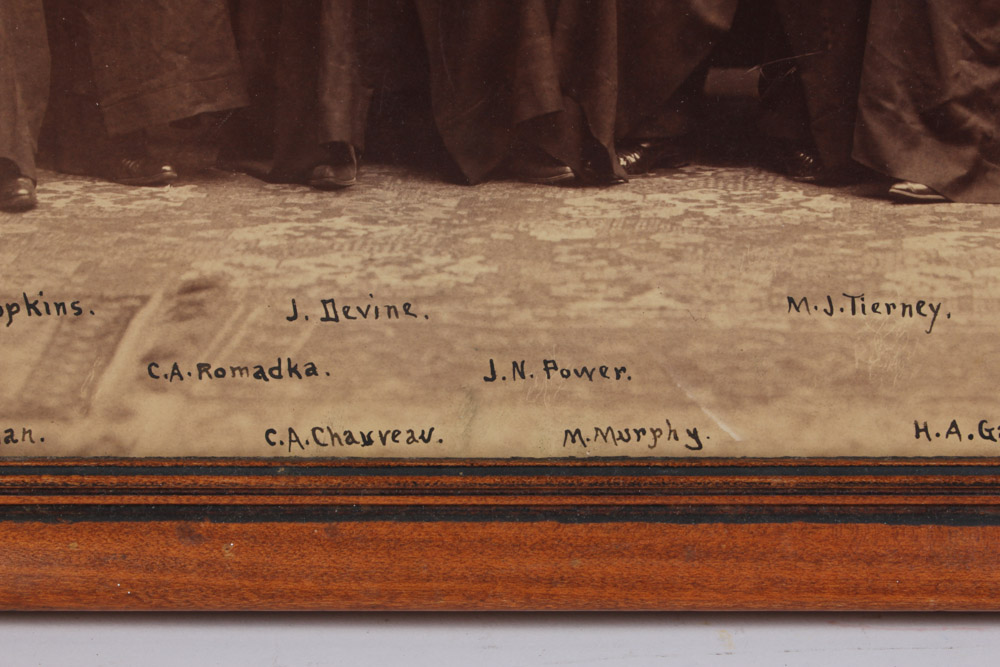 opkins. J. Devine. M.J.Tierney.
C.A.Romadka. J.N.Power.
an. C.A.Chauveau. M.Murphy. H.A.Ga